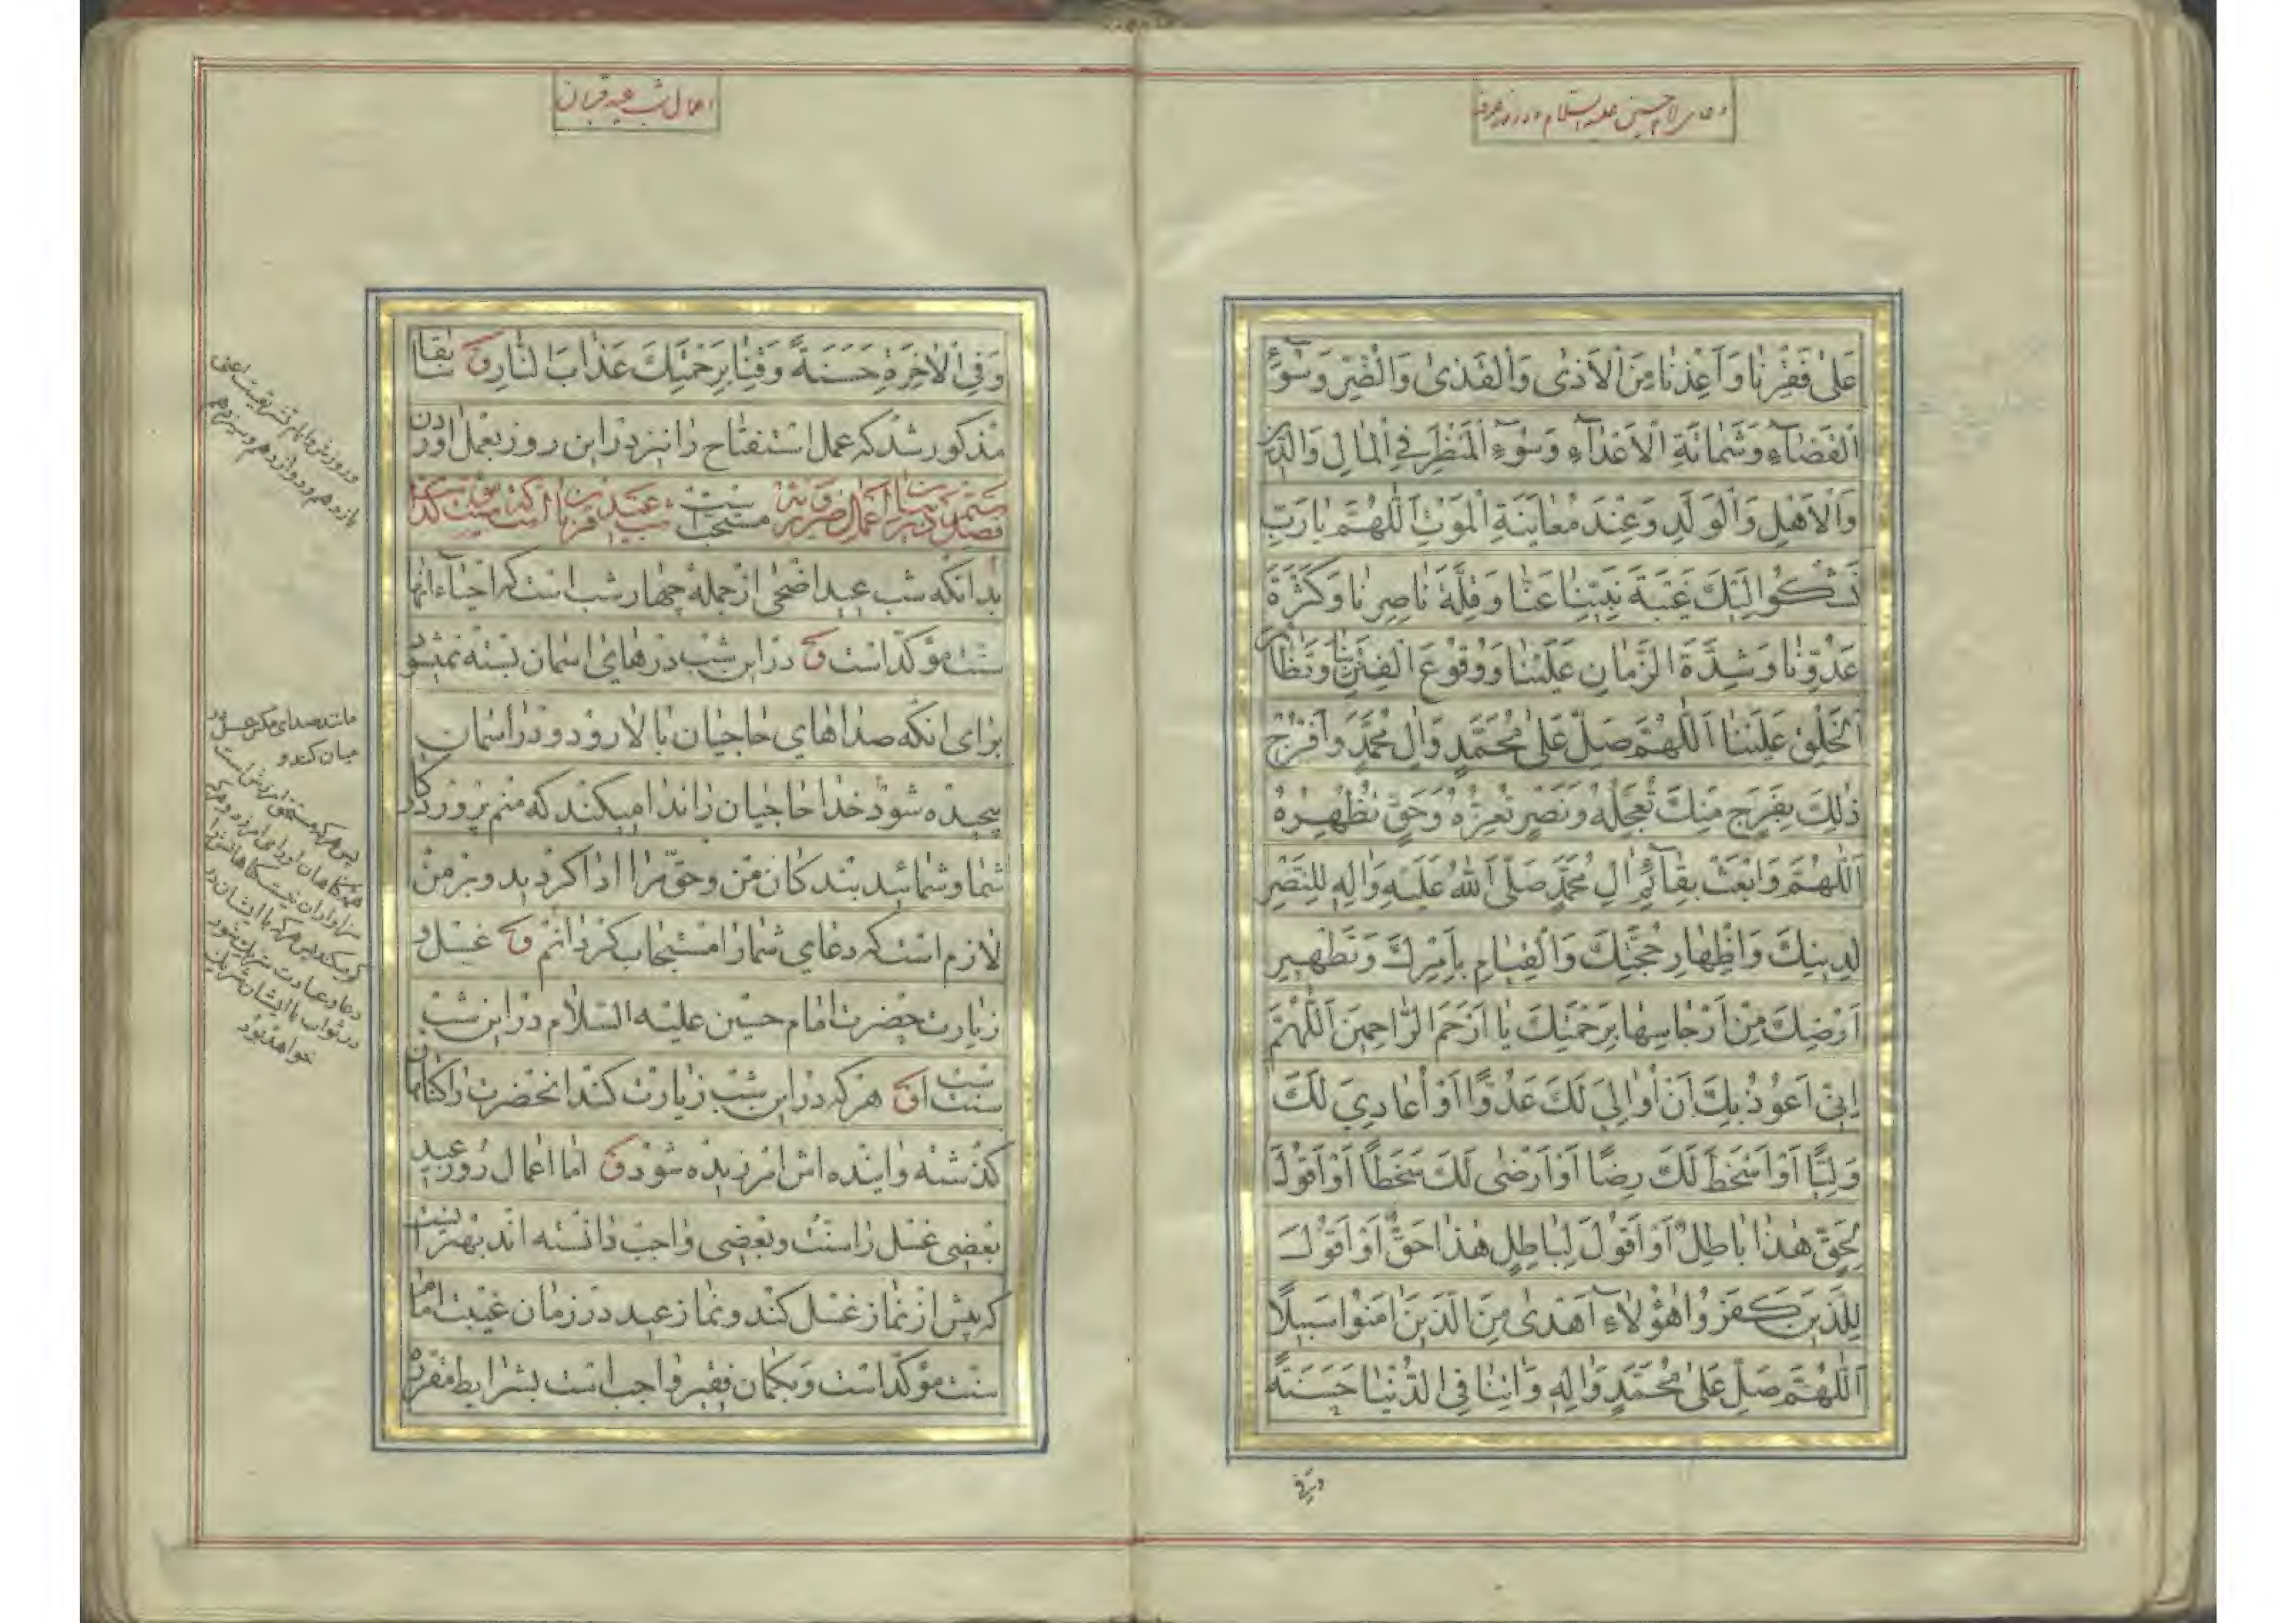 دعای امام حسین علیه السلام در روز عرفه
عَلیٰ فَقْرِنٰا وَاَعِذْنٰا مِنَ الْاَذیٰ وَالْقَذیٰ وَالْضُّرِّ وَسُوۤءِ
الْقَضٰاۤءِ وَشَمٰاتَةِ الْاَعْدٰاۤءِ وَسُوۤءِ الْمَنْظَرِ فِی الْمٰالِ وَالدّینِ
وَالْاَهْلِ وَالْوَلَدِ وَعِنْدَ مُعٰایَنَةِ الْمَوْتِ اَللّٰهُمَّ یٰا رَبِّ
نَشْکُوا اِلَیْكَ غَیْبَةَ نَبِیِّنٰا عَنّٰا وَقِلَّةَ نٰاصِرِنٰا وَکَثْرَةَ
عَدُوِّنٰا وَشِدَّةَ الزَّمٰانِ عَلَیْنٰا وَوُقُوعَ الْفِتَنِ بِنٰا وَتَظٰاهُرَ
الْخَلْقِ عَلَیْنٰا اَللّٰهُمَّ صَلِّ عَلیٰ مُحَمَّدٍ وَاٰلِ مُحَمَّدٍ وَافْرُجْ
ذٰلِكَ بِفَرَجٍ مِنْكَ تُعَجِّلُهُ وَنَصْرٍ تُعِزُّهُ وَحَقٍّ تُظْهِرُهُ
اَللّٰهُمَّ وَابْعَثْ بِقٰاۤئِمِ اٰلِ مُحَمَّدٍ صَلَّی اللّٰهُ عَلَیْهِ وَاٰلِهِ لِلنَّصْرِ
لِدینِكَ وَاِظْهٰارِ حُجَّتِكَ وَالْقِیٰامِ بِاَمْرِكَ وَتَطْهیرِ
اَرْضِكَ مِنْ اَرْجٰاسِهٰا بِرَحْمَتِكَ یٰا اَرْحَمَ الرّٰاحِمینَ اَللّٰهُمَّ
اِنّی اَعُوذُ بِكَ اَنْ اُوٰالِیَ لَكَ عَدُوًّا اَوْ اُعٰادِیَ لَكَ
وَلِیًّا اَوْ اَسْخَطَ لَكَ رِضًا اَوْ اَرْضیٰ لَكَ سَخَطًا اَوْ اَقُولَ
لِحَقٍّ هٰذٰا بٰاطِلٌ اَوْ اَقُولَ لِبٰاطِلٍ هٰذٰا حَقٌّ اَوْ اَقُولَ
لِلَّذینَ کَفَرُوا هٰؤُلاٰۤءِ اَهْدیٰ مِنَ الَّذینَ اٰمَنُوا سَبیلًا
اَللّٰهُمَّ صَلِّ عَلیٰ مُحَمَّدٍ وَاٰلِهِ وَاٰتِنٰا فِی الدُّنْیٰا حَسَنَةً
وفی
اعمال شب عید قربان
وَفِی الْاٰخِرَةِ حَسَنَةً وَقِنٰا بِرَحْمَتِكَ عَذٰابَ النّٰارِ ق سٰابقا
مذکور شد که عمل استفتاح را نیز در این روز بعمل اوردن
سنت است فصل در بیان اعمال شب عید قربان
بدانکه شب عید اضحی از جمله چهار شب است که احیاء انها
سنت مؤکد است ق در این شب درهای اسمان بسته نمیشود
برای انکه صداهای حاجیان بالا رود و در اسمان
پیچیده شود خدا حاجیان را ندا میکند که منم پروردکار
شما و شمائید بندکان من و حق مرا ادا کردید و بر من
لازم است که دعای شما را مستجاب کردانم ق غسل و
زیارت حضرت امام حسین علیه السلام در این شب
سنت است ق هر که در این شب زیارت کند انحضرت را کناهان
کذشته و اینده اش امرزیده شود ق اما اعمال روز عید
بعضی غسل را سنت و بعضی واجب دانسته اند بهتر انست
که پیش از نماز غسل کند و نماز عید در زمان غیبت امام
سنت مؤکد است و بکمان فقیر واجب است بشرایط مقرره
و روزش و ایام تشریقست اعنی
یازدهم و دوازدهم و سیزدهم
مانند صدای مکس عسل و در
میان کندو
پس هر که مستحق امرزش است
کناهان او را می امرزد و هر که
در ثواب با ایشان شریک
خواهد بود